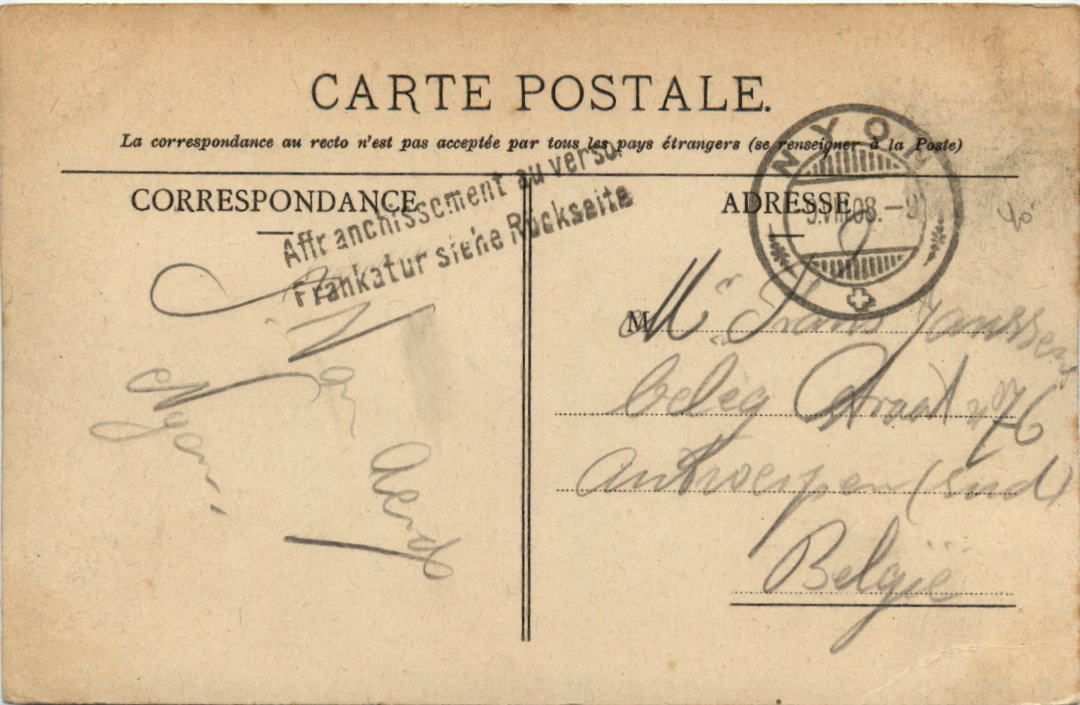 CARTE POSTALE.
La correspondance au recto n'est pas acceptée par tous les pays étrangers (se renseigner à la Poste)
CORRESPONDANCE
Affranchissement au verso.
Frankatur siehe Rückseite
J. Van
Nyon
ADRESSE
NYON
VII.08.-9
40-
M
Mr. Frans Janssens
beleg Straat 76
Antwerpen (Sud)
België